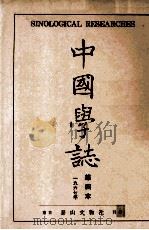 SINOLOGICAL RESEARCHES
中國學誌
第四本
一九六七年
泰山文物社